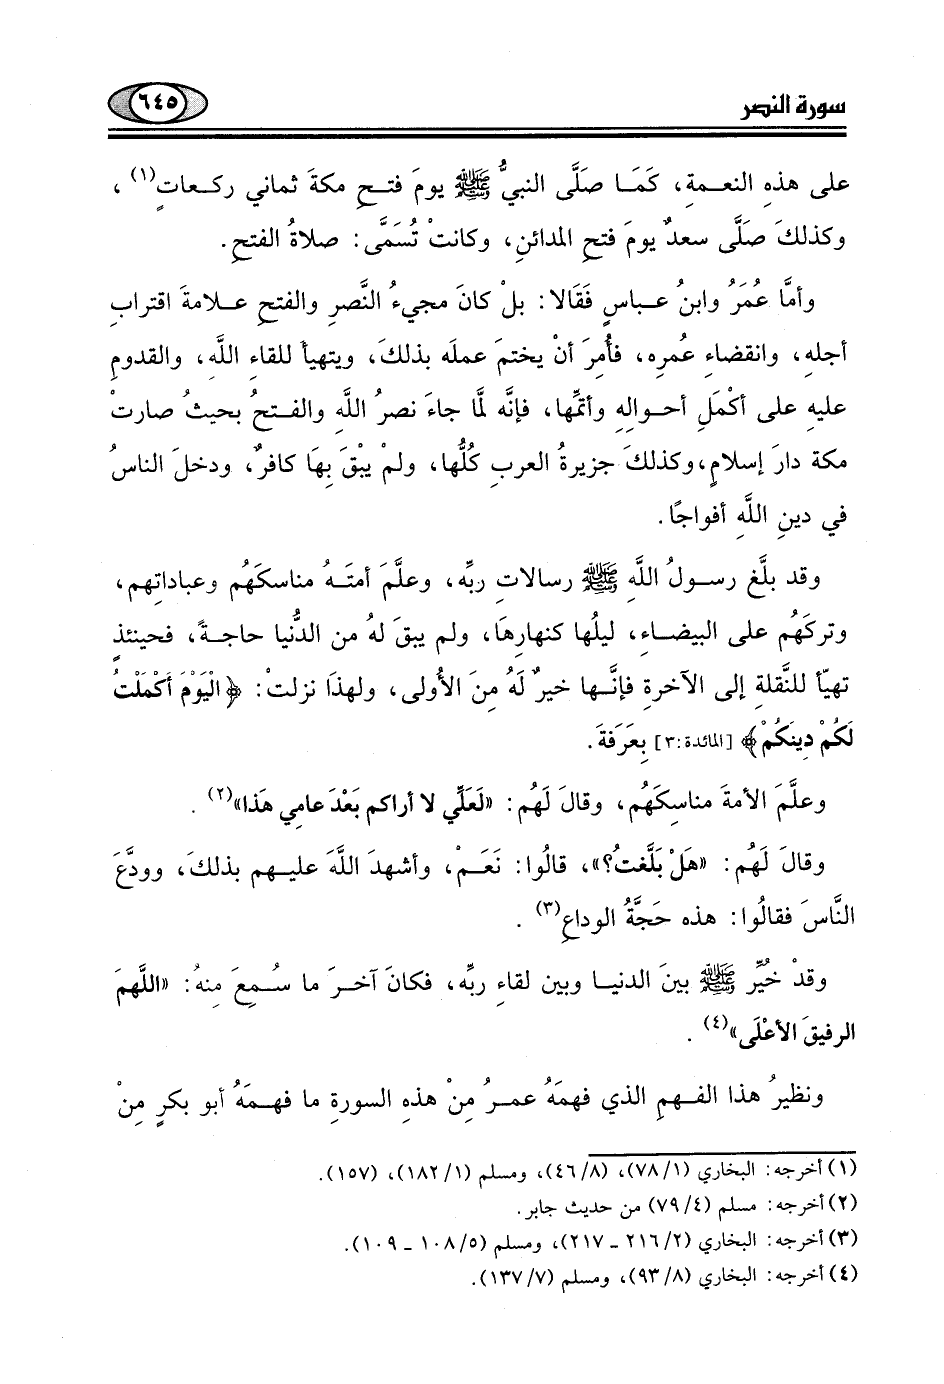 سورة النصر
٦٤٥
على هذه النعمةِ، كَمَا صَلَّى النبيُّ ﷺ يومَ فتحِ مكةَ ثماني ركعاتٍ(١)،
وكذلكَ صَلَّى سعدٌ يومَ فتحِ المدائنِ، وكانتْ تُسَمَّى: صلاةُ الفتحِ.
وأمَّا عُمَرُ وابنُ عباسٍ فقَالا: بلْ كانَ مجيءُ النَّصرِ والفتحِ علامةَ اقترابِ
أجلهِ، وانقضاءِ عُمره، فأُمِرَ أنْ يختمَ عملَه بذلكَ، ويتهيأَ للقاءِ اللَّه، والقدومِ
عليهِ على أكْمَلِ أحوالِهِ وأتمِّها، فإنَّه لمَّا جاءَ نصرُ اللَّهِ والفتحُ بحيثُ صارتْ
مكة دارَ إسلامٍ، وكذلكَ جزيرةُ العربِ كُلُّها، ولمْ يبْقَ بِهَا كافرٌ، ودخلَ الناسُ
في دينِ اللَّهِ أفواجًا.
وقد بلَّغ رسولُ اللَّهِ ﷺ رسالاتِ ربِّه، وعلَّمَ أمتَهُ مناسكَهُم وعباداتِهم،
وتركَهُم على البيضاءِ، ليلُها كنهارِهَا، ولم يبقَ لهُ من الدُّنيا حاجةٌ، فحينئذٍ
تهيَّأ للنَّقلةِ إلى الآخرةِ فإنَّها خيرٌ لَهُ مِنَ الأُولى، ولهذَا نزلتْ: ﴿الْيَوْمَ أَكْمَلْتُ
لَكُمْ دِينَكُمْ﴾ [المائدة:٣] بِعَرَفةَ.
وعلَّمَ الأمةَ مناسكَهُم، وقالَ لَهُم: «لَعَلِّي لا أراكم بَعْدَ عامِي هَذَا»(٢).
وقالَ لَهُم: «هَلْ بَلَّغتُ؟»، قالُوا: نَعَمْ، وأشهدَ اللَّهَ عليهم بذلكَ، وودَّعَ
النَّاسَ فقالُوا: هذه حَجَّةُ الوداعِ(٣).
وقدْ خُيِّر ﷺ بينَ الدنيا وبين لقاءِ ربِّه، فكانَ آخرَ ما سُمعَ مِنهُ: «اللَّهمَ
الرفيقَ الأعْلَى»(٤).
ونظيرُ هذا الفهمِ الذي فهمَهُ عمرُ مِنْ هذهِ السورةِ ما فهمَهُ أبو بكرٍ مِنْ
(١) أخرجه: البخاري (٧٨/١)، (٤٦/٨)، ومسلم (١٨٢/١)، (١٥٧).
(٢) أخرجه: مسلم (٧٩/٤) من حديث جابر.
(٣) أخرجه: البخاري (٢١٦/٢ ـ ٢١٧)، ومسلم (١٠٨/٥ ـ ١٠٩).
(٤) أخرجه: البخاري (٩٣/٨)، ومسلم (١٣٧/٧).